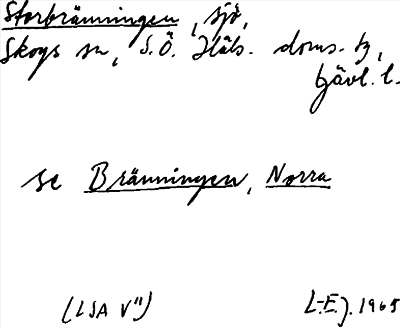 Storbränningen, sjö,
Skogs sn, S.Ö. Häls. doms. tg,
Gävl. l.
se Bränningen, Norra
(LSA V")
L-E.J. 1965